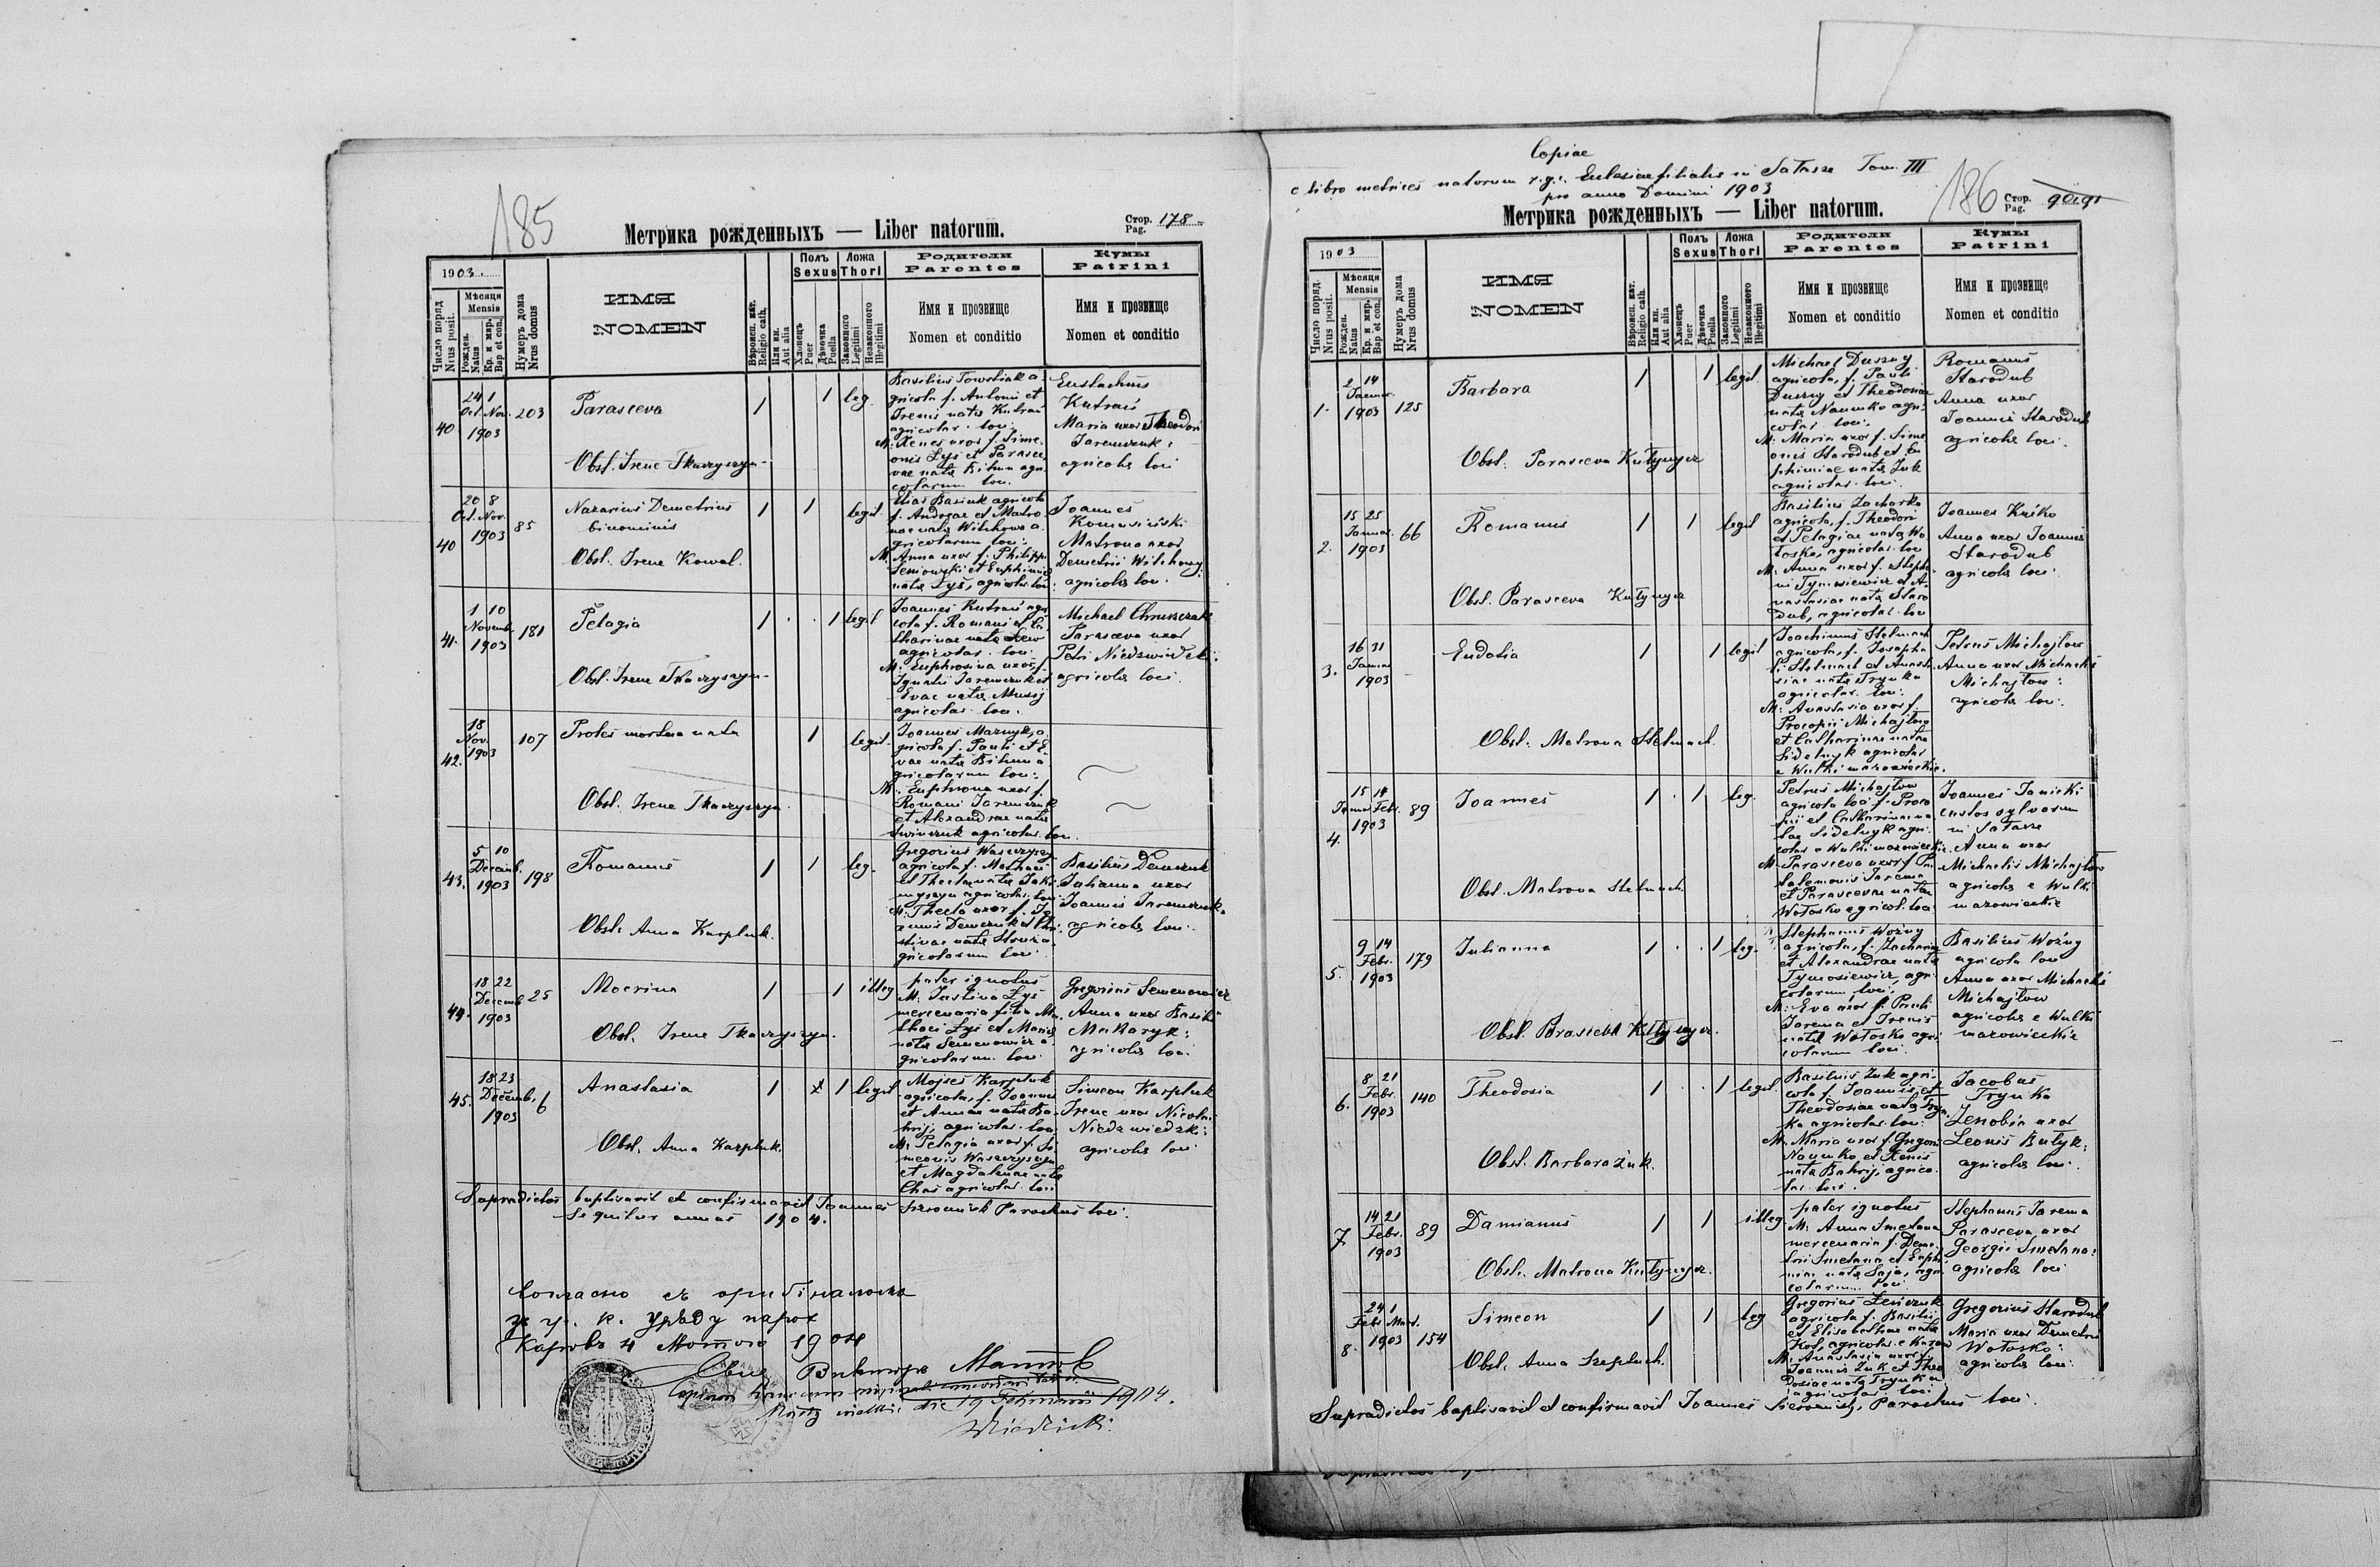 185
Метрика рожденныхъ — Liber natorum.
Стор. Pag. 178
1903.
Число поряд. Nrus posit.
Мѣсяця Mensis
Рожден. Natus
Кр. и мир. Bap et con.
Нумеръ дома Nrus domus
ИМЯ
NOMEN
Вѣроисп. кат. Religio cath.
Или ин. Aut alia
Полъ Sexus
Хлопецъ Puer
Дѣвочка Puella
Ложа Thori
Законного Legitimi
Незаконного Illegitimi
Родители
Parentes
Имя и прозвище
Nomen et conditio
Кумы
Patrini
Имя и прозвище
Nomen et conditio
40.
24 1
Oct. Nov.
1903
203
Parasceva
Obst. Irene Tkaczyszyn
1 1 leg.
Basilius Towstiak a
gricola f. Antonii et
Irenis nata Kutrań
agricolar. loci.
M. Xenes uxor f. Sime
onis Lys et Parasce
vae nata Bihun agri
colarum loci.
Eustachius
Kutrań
Maria uxor Theodori
Jaremczuk:
agricolae loci
40
20 8
Oct. Nov.
1903
85
Nazarius Demetrius
binominis
Obst. Irene Kowal.
1 1 legit.
Elias Basiuk agricola
f. Andreae et Matro
nae nata Witkowa a
gricolarum loci:
M. Anna uxor f. Philippi
Seniowski et Euphimiae
nata Łyś, agricolar. loci
Joannes
Komusiński
Matrona uxor
Demetrii Witkowy
agricolae loci.
41.
1 10
Novemb.
1903
181
Pelagia
Obst. Irene Tkaczyszyn
1 . . 1 legit
Joannes Kutrań agri
cola f. Romani et Ca
tharinae nata Lew
agricolar. loci.
M. Euphrosina uxor f.
Ignatii Jaremczuk et
Evae nata Musij
agricolar. loci.
Michael Chruszczak
Parasceva uxor
Petri Niedzwiedzki:
agricolae loci.
42.
18
Nov.
1903
107
Proles mortua nata
Obst. Irene Tkaczyszyn.
1 legit.
Joannes Mazuyk, a
gricola f. Pauli et E
vae nata Bihun a
gricolarum loci:
M. Euphrona uxor f.
Romani Jaremczuk
et Alexandrae nata
Swinczuk agricolar. loci.
43.
5 10
Decemb.
1903
198
Romanus
Obst. Anna Karpluk.
1 1 leg.
Gregorius Waszczyszyn
agricola f. Mathaei
et Theclae nata Jaki
myszyn agricolar. loci
M. Thecla uxor f. Jo
annis Demczuk et Chri
stinae nata Struż a
gricolarum loci.
Basilius Demczuk
Julianna uxor
Joannis Jaremczuk
agricolae loci.
44.
18 22
Decemb
1903
25
Macrina
Obst. Irene Tkaczyszyn.
1 1 illeg
pater ignotus
M. Justina Łyś
mercenaria filia Ma
thaei Łyś et Mariae
nata Semenowicz a
gricolarum loci
Gregorius Semenowicz
Anna uxor Basilii
Makaryk:
agricolae loci.
45.
18 23
Decemb.
1903
6
Anastasia
Obst. Anna Karpluk.
1 1 legit
Mojses Karpluk
agricola, f. Joannis
et Annae nata Ba
hrij, agricolar. loci
M: Pelagia uxor f. Si
meonis Waszczyszyn
et Magdalenae nata
Chaś agricolar. loci
Simeon Karpluk
Irene uxor Nicolai
Niedzwiedzki:
agricolae loci
Supradictos baptisavit et confirmavit Joannes Sierocniuk Parochus loci.
Sequitur annus 1904.
Согласно съ оригіналомъ
гр. к. Урядъ парох
Каровъ 4 Лютого 1904
19 Februarii 1904.
Copiae
e libro metrices natorum r.g.c. Ecclesiae filialis in Sałasze Tom. III
pro anno Domini 1903
186
Метрика рожденныхъ — Liber natorum.
Стор. Pag. 90.91
1903
Число поряд. Nrus posit.
Мѣсяця Mensis
Рожден. Natus
Кр. и мир. Bap et con.
Нумеръ дома Nrus domus
ИМЯ
NOMEN
Вѣроисп. кат. Religio cath.
Или ин. Aut alia
Полъ Sexus
Хлопецъ Puer
Дѣвочка Puella
Ложа Thori
Законного Legitimi
Незаконного Illegitimi
Родители
Parentes
Имя и прозвище
Nomen et conditio
Кумы
Patrini
Имя и прозвище
Nomen et conditio
1.
2 14
Januar.
1903
125
Barbara
Obst: Parasceva Kułynycz
1 1 legit.
Michael Duszny
agricola, f. Pauli
Duszny et Theodosiae
nata Naumko agri
colar. loci.
M: Maria uxor f. Sime
onis Starodub et Eu
phimiae nata Żuk
agricolar. loci.
Romanus
Starodub
Anna uxor
Joannis Starodub
agricolae loci.
2.
15 25
Januar.
1903
66
Romanus
Obst. Parasceva Kułynycz
1 1 legit
Basilius Zacharko
agricola, f. Theodori
et Pelagiae nata Wo
łosko, agricolar. loci
M. Anna uxor f. Steph
ni Tymosiewicz et A
nastasiae nata Staro
dub, agricolar. loci
Joannes Kuśko
Anna uxor Joannis
Starodub
agricolae loci.
3.
16 31
Januar
1903
Eudokia
Obst: Matrona Stelmach.
1 1 legit
Joachimus Stelmach
agricola, f. Josaphа
ti Stelmach et Anasta
siae nata Trynka
agricolar. loci.
M. Anastasia uxor f.
Procopii Michajłow
et Catharinae nata
Sidelnyk agricolar.
e Wulki mazowieckie.
Petrus Michajłow
Anna uxor Michaelis
Michajłow:
agricolae loci.
4.
15 14
Januar Febr.
1903
89
Joannes
Obst. Matrona Stelmach.
1 . 1 leg.
Petrus Michajłow
agricola loci f. Proco
pii et Catharinae na
tae Sidelnyk agri
colar. e Wulki mazowieckie
M. Parasceva uxor f. Pan
talemonis Jarema
et Parascevae natae
Wołosko agricol. loci
Joannes Janicki
custos sylvarum
in Sałasze
Anna uxor
Michaelis Michajłow
agricolae e Wulki
mazowieckie
5.
9 14
Febr.
1903
179
Julianna
Obst. Parasceva Kułynycz.
1 . . 1 leg.
Stephanus Woźny
agricola, f. Zachariae
et Alexandrae nata
Tymosiewicz, agri
colarum loci,
M: Eva uxor f. Pauli
Jarema et Irenis
nata Wołosko agri
colarum loci.
Basilius Woźny
agricola loci
Anna uxor Michaelis
Michajłow
agricolae e Wulki
mazowieckie
6.
8 21
Febr.
1903
140
Theodosia
Obst. Barbara Żuk.
1 . . 1 legit.
Basilius Żuk agri
cola f. Joannis et
Theodosiae nata Tryn
ka agricolar. loci:
M. Maria uxor f. Gregorii
Naumko, et Xenis
nata Bahrij, agrico
lar. loci.
Jacobus
Trynka
Zenobia uxor
Leonis Bułyk:
agricolae loci.
7.
14 21
Febr.
1903
89
Damianus
Obst. Matrona Kułynycz.
1 1 illeg.
pater ignotus
M. Anna Smetana
mercenaria f. Deme
trii Smetana et Euphi
miae nata Saja, agri
colarum loci
Stephanus Jarema
Parasceva uxor
Georgii Smetana:
agricolae loci
8.
24 1
Febr. Mar.
1903
154
Simeon
Obst. Anna Szepluch.
1 1 leg
Gregorius Leńczuk
agricola f. Basilii
et Elisabethae nata
Kot, agricolar. e Karow
M. Anastasia uxor f.
Joannis Żuk et Theo
dosiae nata Trynka
agricolar. loci
Gregorius Starodub
Maria uxor Demetrii
Wołosko:
agricolae loci.
Supradictos baptisavit et confirmavit Joannes Sierocniuk, Parochus loci.